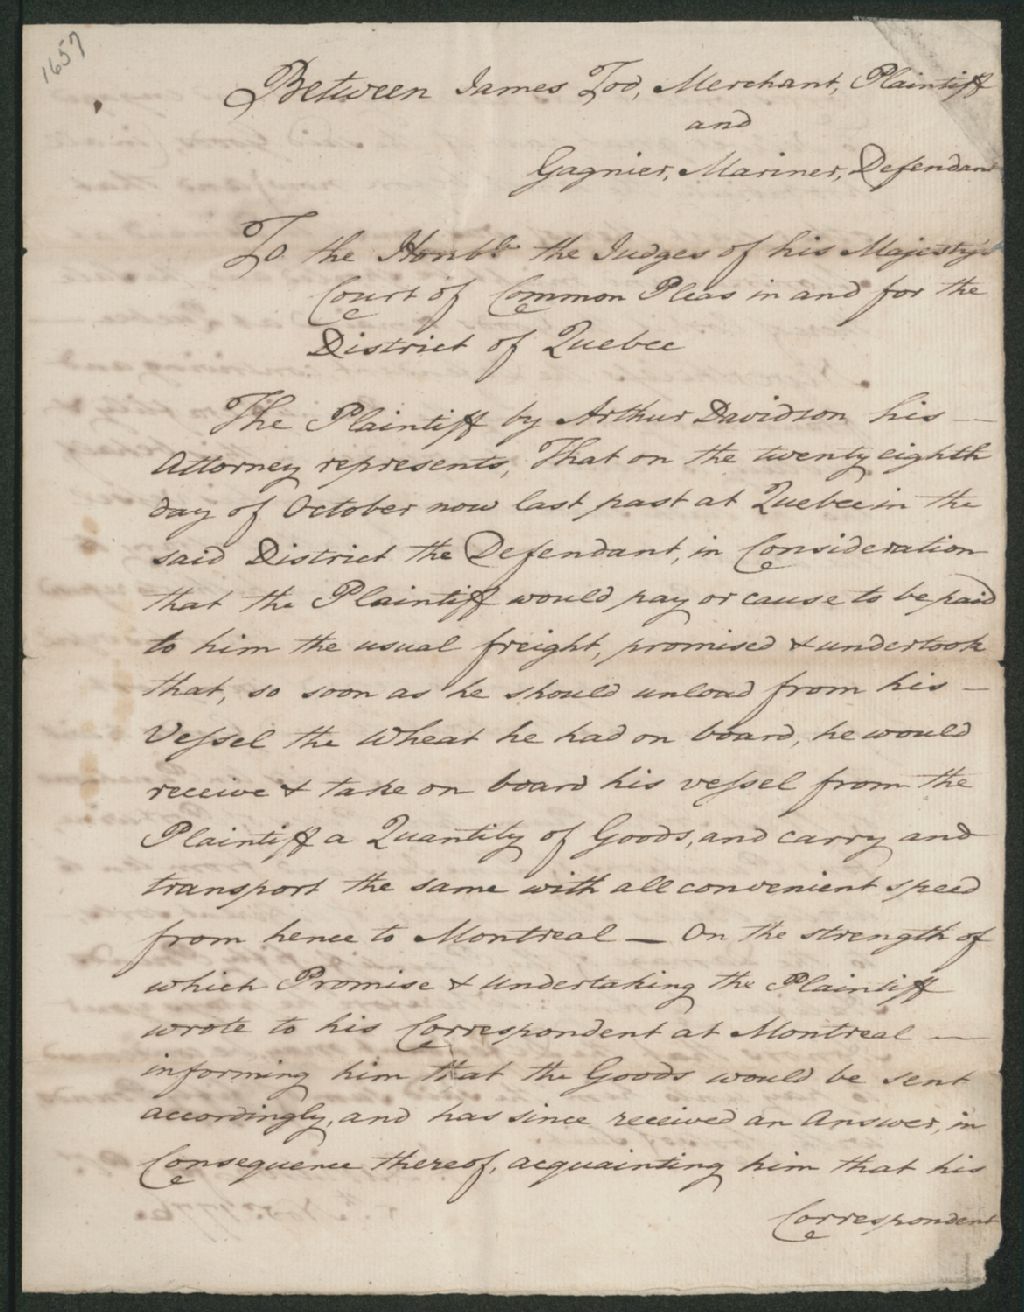 1657
Between James Tod, Merchant, Plaintiff
and
Gagnier, Mariner, Defendant
To the Honble the Judges of his Majesty's
Court of Common Pleas in and for the
District of Quebec
The Plaintiff by Arthur Davidson his —
Attorney represents, That on the twenty eighth
day of October now last past at Quebec in the
said District the Defendant, in Consideration
that the Plaintiff would pay or cause to be paid
to him the usual freight, promised & undertook
that, so soon as he should unload from his —
Vessel the Wheat he had on board, he would
receive & take on board his vessel from the
Plaintiff a Quantity of Goods, and carry and
transport the same with all convenient speed
from hence to Montreal — On the strength of
which Promise & Undertaking the Plaintiff
wrote to his Correspondent at Montreal —
informing him that the Goods would be sent
accordingly, and has since received an Answer, in
Consequence thereof, acquainting him that his
Correspondent